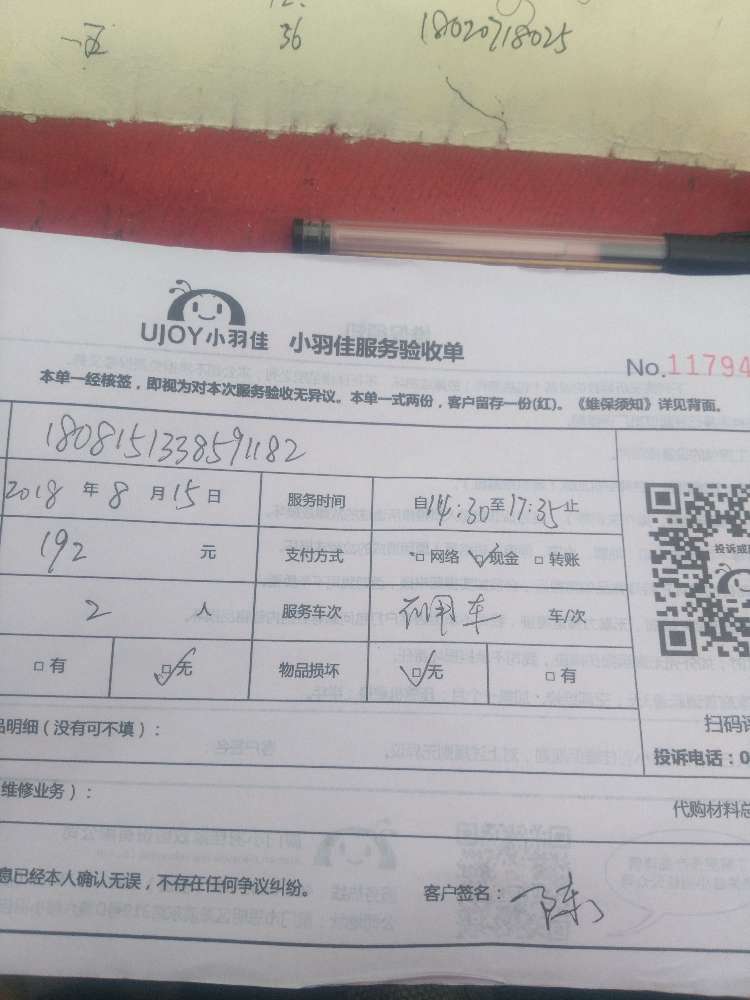 一五 36 18020718025
UJOY小羽佳 小羽佳服务验收单
No.11794
本单一经核签，即视为对本次服务验收无异议。本单一式两份，客户留存一份(红)。《维保须知》详见背面。
1808151338591182
2018 年 8 月 15 日 服务时间 自14:30至17:35止
192 元 支付方式 □ 网络 □现金 □ 转账
2 人 服务车次 车/次
□ 有 □无 物品损坏 □无 □ 有
投诉或
扫码
品明细（没有可不填）：
投诉电话：0
维修业务）：
代购材料总
息已经本人确认无误，不存在任何争议纠纷。 客户签名：陈